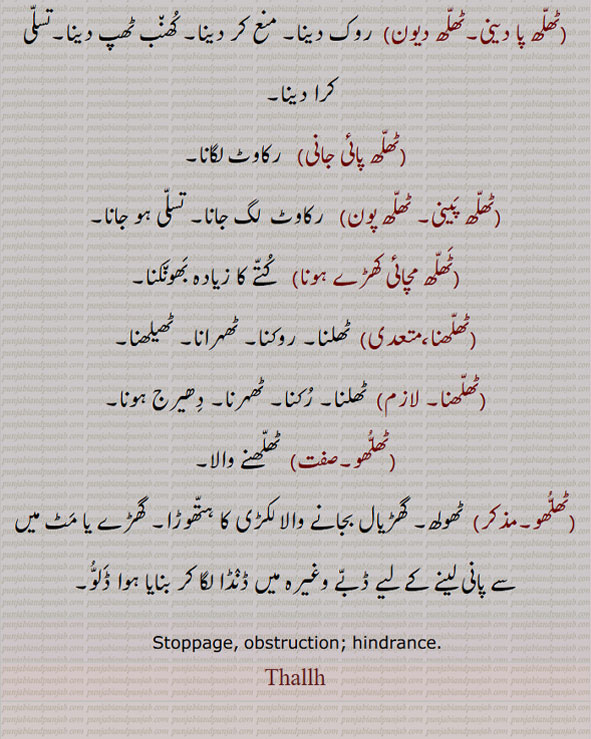 (ٹھلّھ پا دینی۔ٹھلّھ دیون) روک دینا۔ منع کر دینا۔ کُھنّب ٹھپ دینا۔تسلّی
کرا دینا۔
(ٹھلّھ پائی جانی) رکاوٹ لگانا۔
(ٹھلّھ پَینی۔ ٹھلّھ پون) رکاوٹ لگ جانا۔ تسلّی ہو جانا۔
(ٹَھلّھ مچائی کھڑے ہونا) کُتّے کا زیادہ بَھونکنا۔
(ٹھلّھنا،متعدی) ٹھلنا۔ روکنا۔ ٹھہرانا۔ ٹھیلھنا۔
(ٹھلّھنا۔ لازم) ٹھلنا۔ رُکنا۔ ٹھہرنا۔ دِھیرج ہونا۔
(ٹھلُّھو۔صفت) ٹھلّھنے والا۔
(ٹھلُّھو۔مذکر) ٹھولھ۔ گھڑیال بجانے والا لکڑی کا ہتّھوڑا۔ گھڑے یا مَٹ میں
سے پانی لینے کے لیے ڈبّے وغیرہ میں ڈنڈا لگا کر بنایا ہوا ڈَلُّو۔
Stoppage, obstruction; hindrance.
Thallh